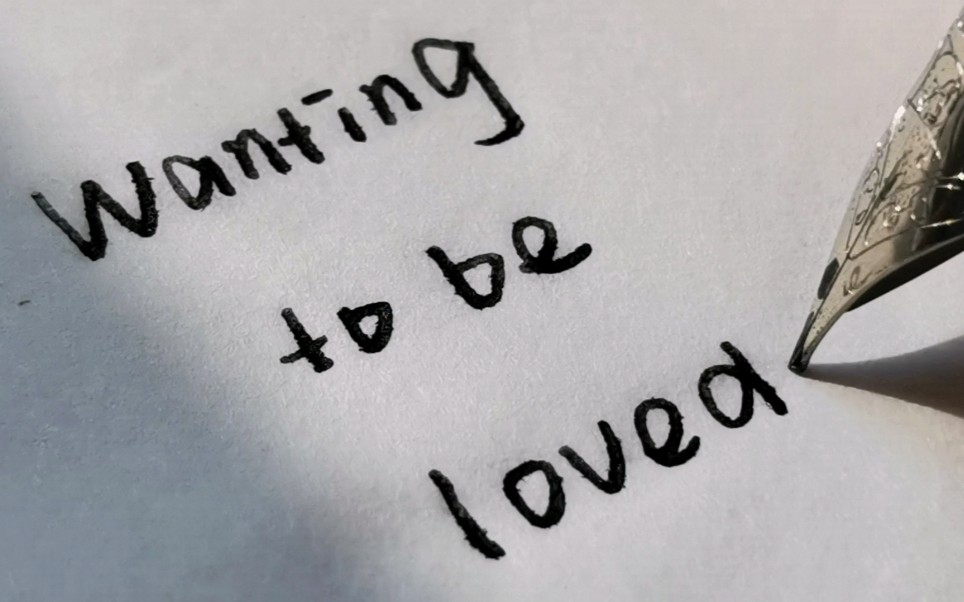 Wanting
to be
loved